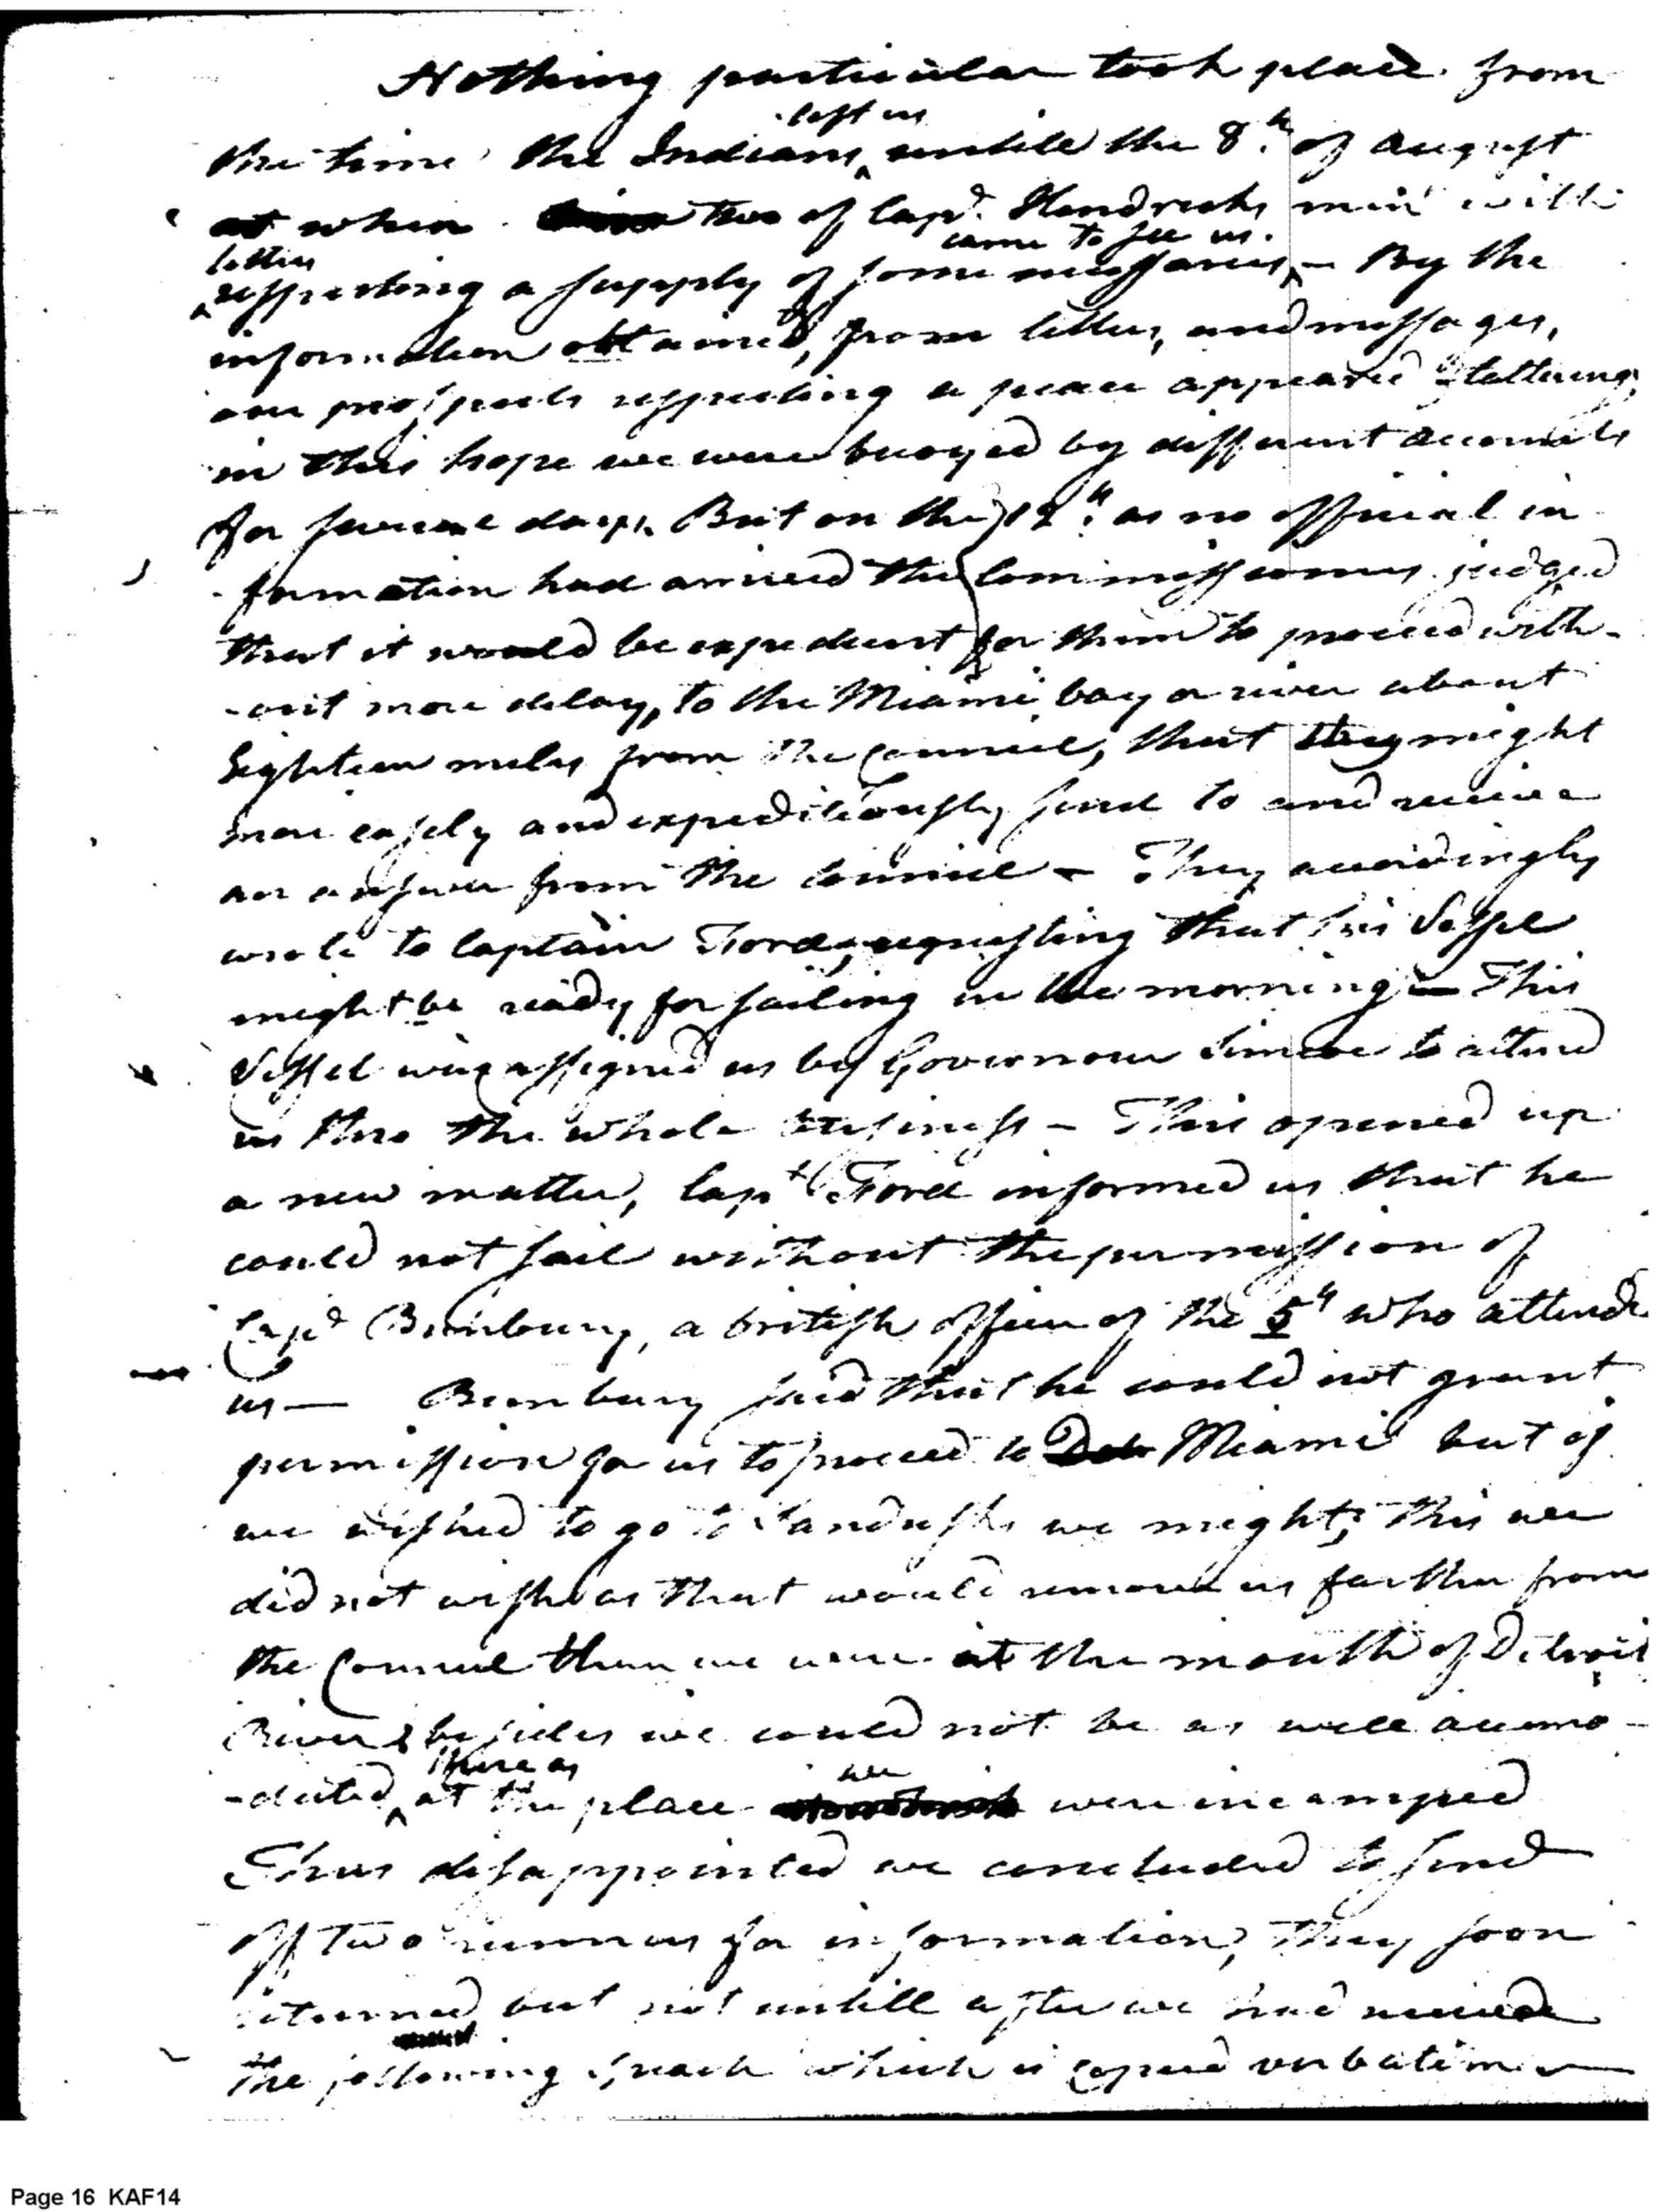 Nothing particular took place from
left us
the time the Indians untill the 8.h of August
at when two of Capt. Hendricks men with
letters came to see us.
respecting a supply of some necessaries – By the
information obtained, from letters, and messages,
our prospects respecting a peace appeared flattering,
in this hope we were buoyed by different accounts
for several days. But on the 12.h as no official in
-formation had arrived the Commissioners judged
that it would be expedient for them to proceed with-
-out more delay, to the Miami bay or river about
Eighteen miles from the Council, that they might
more easely and expeditiously send to and receive
an answer from the Council – They accordingly
wrote to Captain Ford, requesting that his Vessel
might be ready for sailing in the morning – This
Vessel was assigned us by Governour Simcoe to attend
us thro the whole business – This opened up
a new matter, Capt Ford informed us that he
could not sail without the permission of
Capt Bunbury, a british officer of the 5h who attends
us — Bunbury said that he could not grant
permission for us to proceed to Det Miami but if
we wished to go to Sandusky we might; this we
did not wish as that would remove us farther from
the Council than we were at the mouth of Detroit
River & besides we could not be as well accomo-
there as we
-dated at the place were incamped
Thus disappointed we concluded to send
off two runners for information, they soon
returned but not untill after we had received
the following speach which is copied verbatim —
Page 16 KAF14